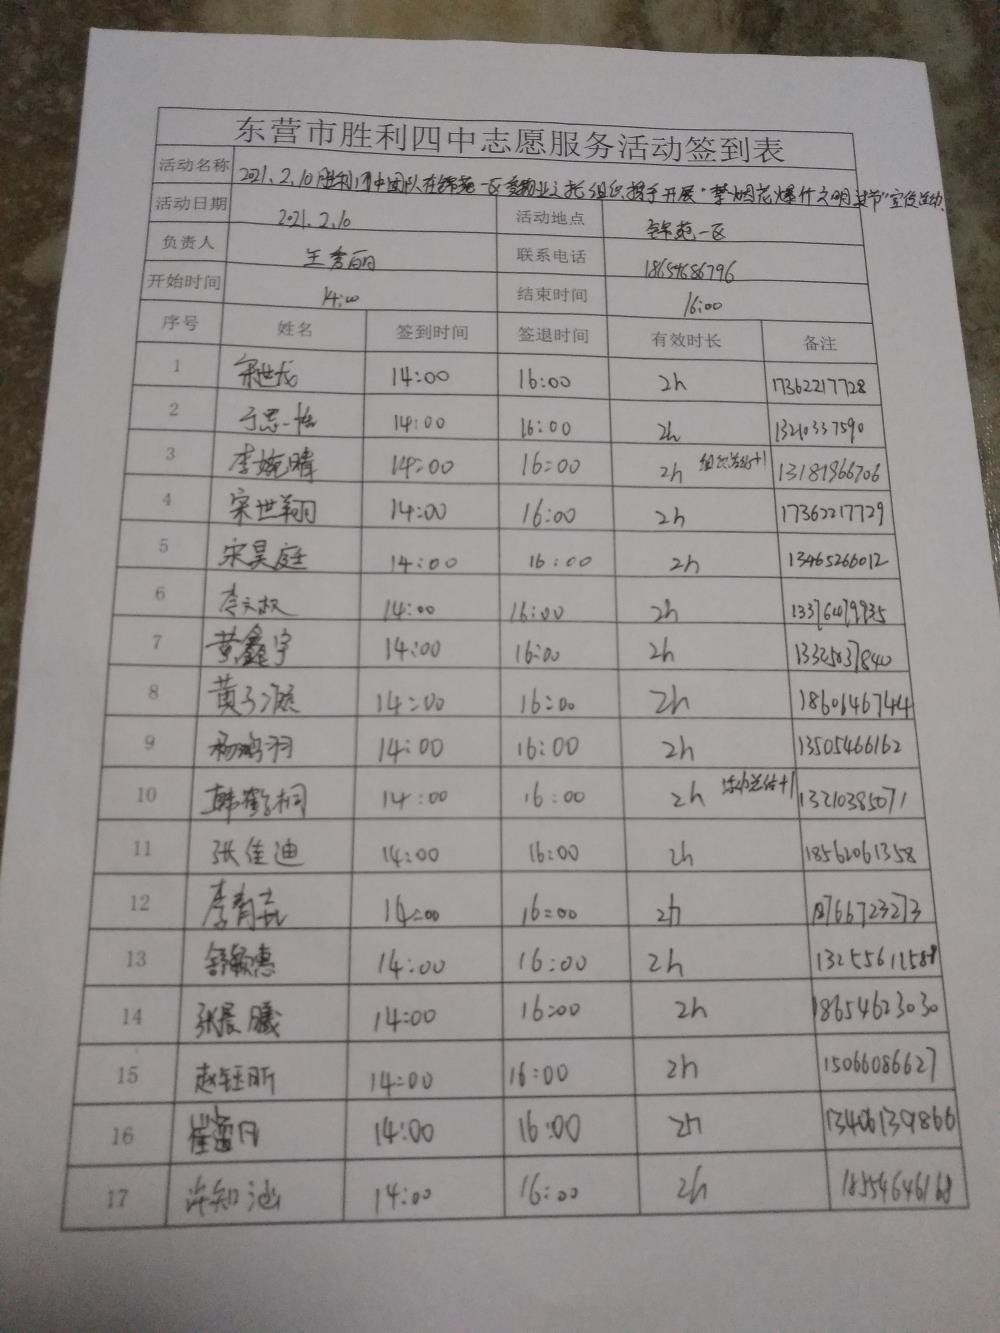 东营市胜利四中志愿服务活动签到表
活动名称 2021.2.10胜利四中团队在锦苑一区 组织携手开展"禁烟花爆竹文明过节"宣传活动.
活动日期 2021.2.10 活动地点 锦苑一区
负责人 王秀丽 联系电话 18654686796
开始时间 14:00 结束时间 16:00
序号 姓名 签到时间 签退时间 有效时长 备注
1 宋世龙 14:00 16:00 2h 17362217728
2 于思一 14:00 16:00 2h 13210337590
3 李婉晴 14:00 16:00 2h 组织总结+1 13181966706
4 宋世翔 14:00 16:00 2h 17362217729
5 宋昊庭 14:00 16:00 2h 13465266012
6 李文 14:00 16:00 2h
7 黄鑫宇 14:00 16:00 2h 13325037840
8 黄子 14:00 16:00 2h 18601467444
9 杨鸿羽 14:00 16:00 2h 13505466162
10 韩鹤桐 14:00 16:00 2h 活动总结+1 13210385071
11 张佳迪 14:00 16:00 2h 18562061358
12 李青 14:00 16:00 2h
13 舒敏惠 14:00 16:00 2h
14 张晨曦 14:00 16:00 2h 18654623030
15 赵钰昕 14:00 16:00 2h 15066086627
16 崔 14:00 16:00 2h 13406139866
17 许知 14:00 16:00 2h 18554646168